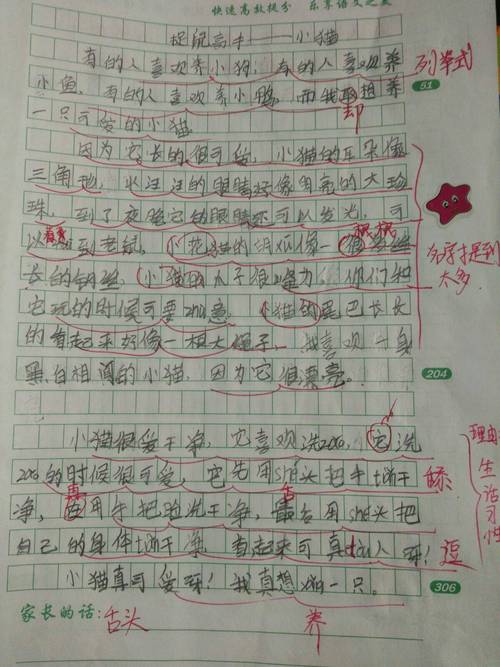 快速高效提分 乐享语文之美
捉鼠高手——小猫
有的人喜欢养小狗,有的人喜欢养 列举式
小鱼,有的人喜欢养小鸭,而我却想养 51
一只可爱的小猫 却
因为它长的很可爱,小猫的耳朵像
三角地,水汪汪的眼睛好像明亮的大珍
珠,到了夜晚它的眼睛还可以发光,可
以看到老鼠,小花猫的胡须像一根
长的钢丝,小猫的爪子很 力,你们和 名字提到太多
它玩的时候可要zhu意,小猫的尾巴长长
的看起来好像一根大绳子,我喜欢一身
黑白相间的小猫,因为它很漂亮。 204
小猫很爱干净,它喜欢洗zao,它洗 理由:生活习性
zao的时候很可爱,它先用she头把手tian干 舔
净,再用手把脸洗干净,最后用she头把
自己的身体tian干净,看起来可真dou人呀! 逗
小猫真可爱呀!我真想 一只。 306
家长的话: 舌头 养